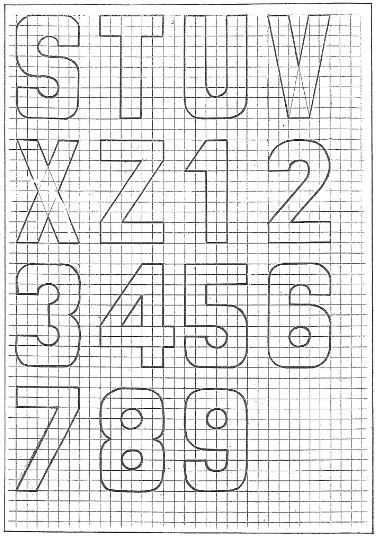 S T U V
X Z 1 2
3 4 5 6
7 8 9